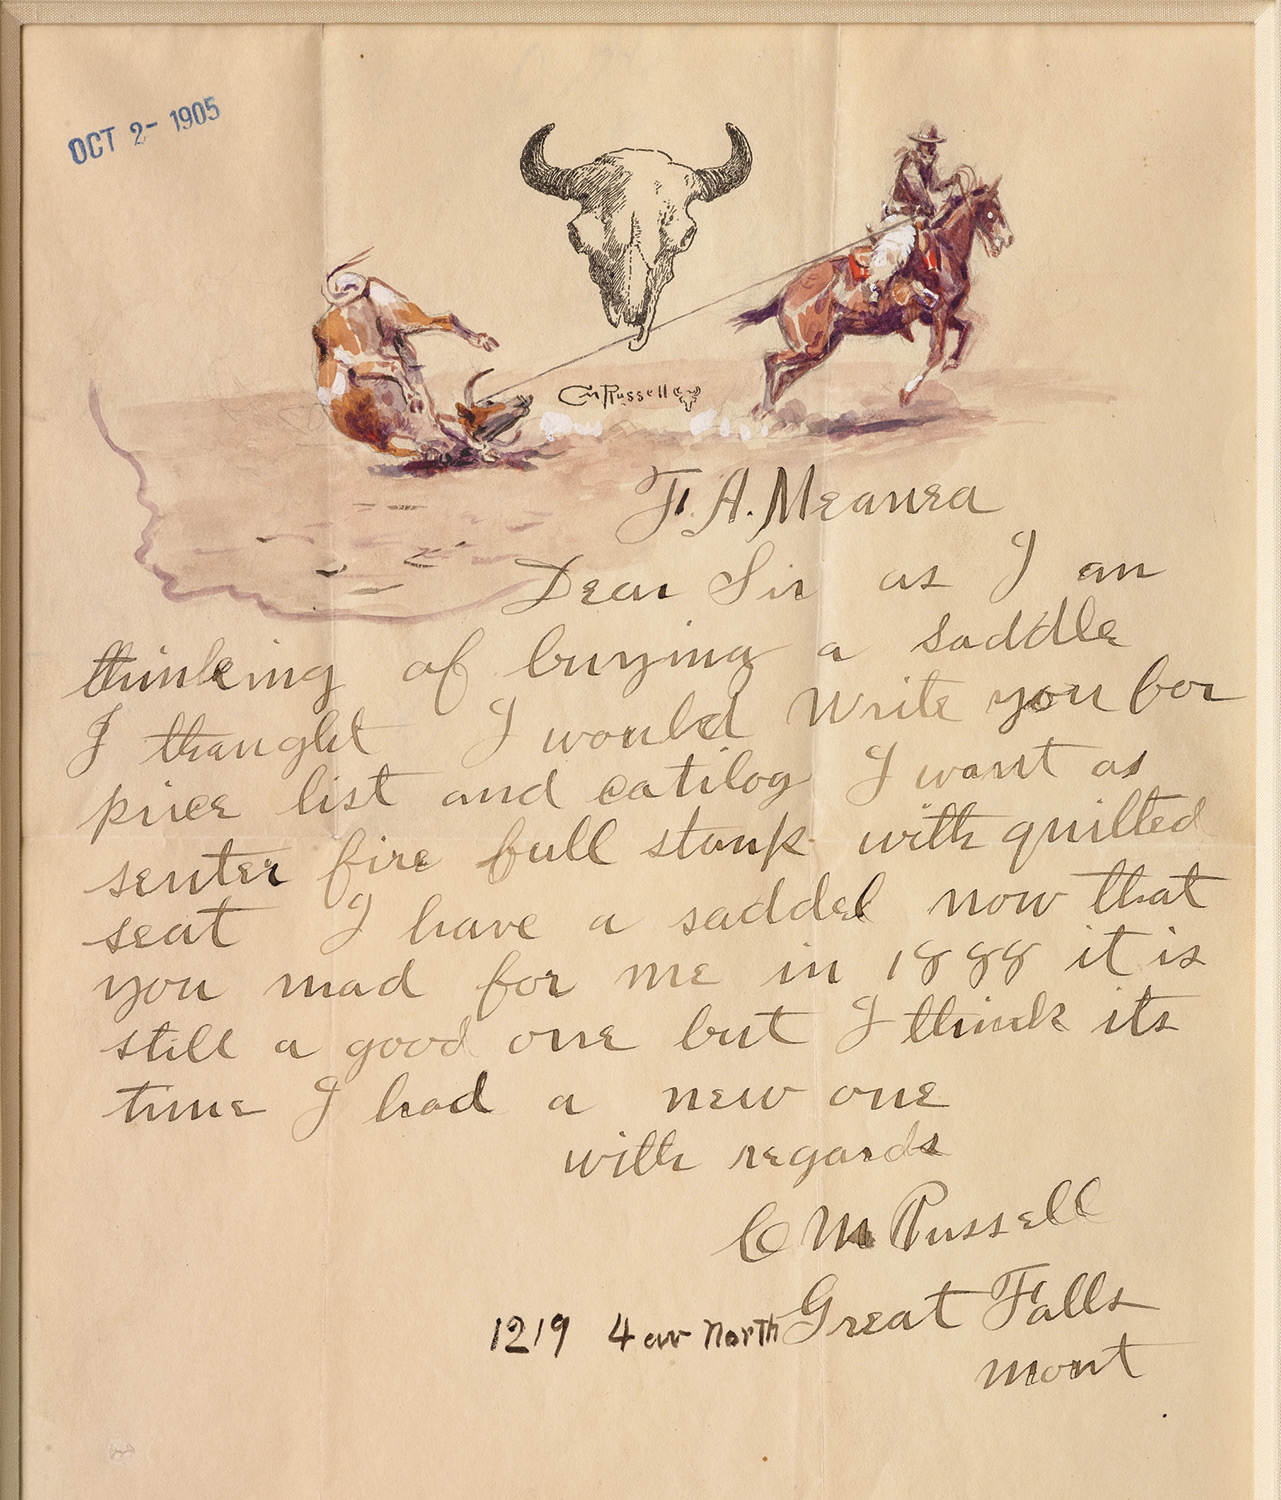 OCT 2- 1905
CM Russell
F. A. Meanea
Dear Sir as I am
thinking of buying a saddle
I thaught I would Write you for
price list and catilog I want as
senter fire full stamp with quilted
seat I have a saddel now that
you mad for me in 1888 it is
still a good one but I think its
time I had a new one
with regards
C M Russell
1219 4 av North Great Falls
Mont